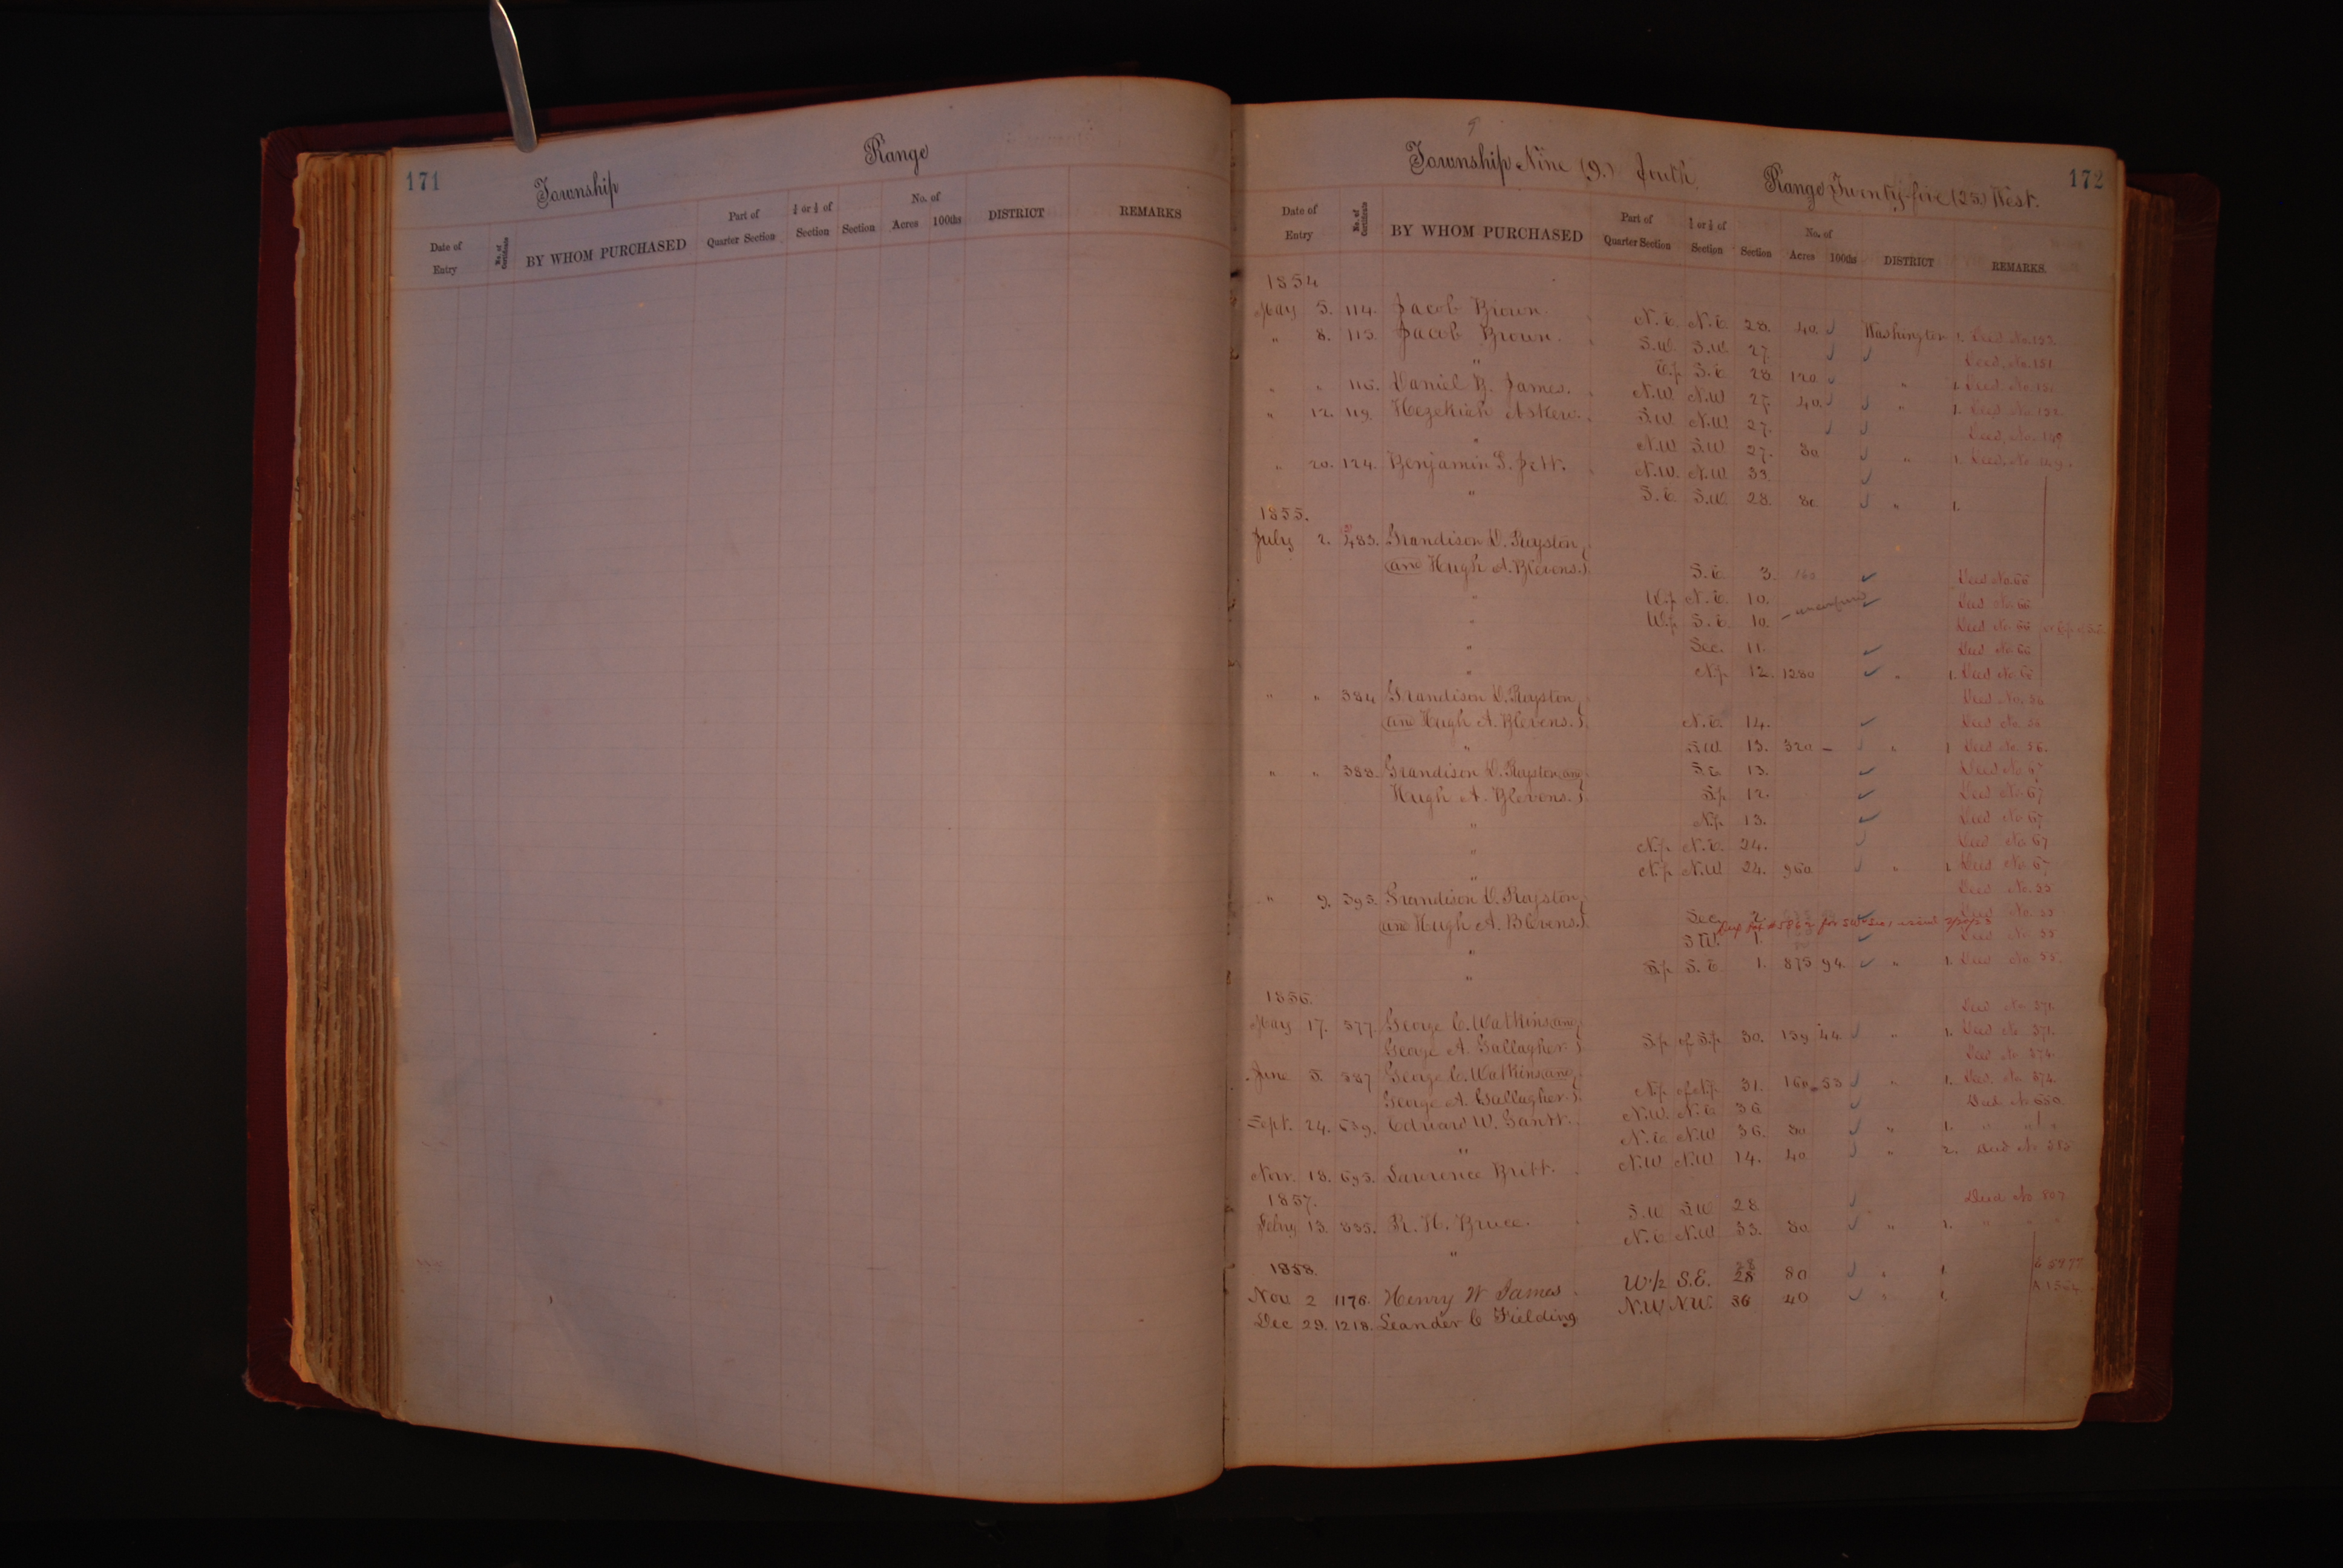 171
Township
Range
Date of Entry
No. of Certificate
BY WHOM PURCHASED
Part of Quarter Section
½ or ¼ of Section
Section
No. of Acres 100ths
DISTRICT
REMARKS
172
9
Township Nine (9.) South Range Twenty-five (25.) West.
Date of Entry
No. of Certificate
BY WHOM PURCHASED
Part of Quarter Section
½ or ¼ of Section
Section
No. of Acres 100ths
DISTRICT
REMARKS.
1854
May 5. 114. Jacob Brown. N.E. N.E. 28. 40. Washington 1. Deed No.
" 8. 115. Jacob Brown. S.W. S.W. 27. Deed No. 151
" E.½ S.E. 28 120 " 1. Deed No.
" " 116. Daniel B. James. N.W. N.W. 27. 40. " 1. Deed No. 152
" 12. 119. Hezekiah Askew. S.W. N.W. 27. Deed No. 149
" N.W. S.W. 27. 80 " 1. Deed No.
" 20. 124. Benjamin S. Jett. N.W. N.W. 33.
" S.E. S.W. 28. 80 " 1.
1855.
July 2. 383. Grandison D. Royston,
and Hugh A. Blevens. S.E. 3. 160 Deed No. 66
" W.½ N.E. 10. Deed No. 66
" W.½ S.E. 10. Deed No. 66
" Sec. 11. Deed No. 66
" N.½ 12. 1280 " 1. Deed No. 66
" " 384 Grandison D. Royston, Deed No. 56
and Hugh A. Blevens. N.E. 14. Deed No. 56
" S.W. 13. 320 – " 1 Deed No. 56.
" " 388. Grandison D. Royston, and S.E. 13. Deed No 67
Hugh A. Blevens. S.½ 12. Deed No 67
" N.½ 13. Deed No 67
" N.½ N.E. 24. Deed No 67
" N.½ N.W. 24. 960 " 1. Deed No 67
" 9. 393. Grandison D. Royston, Deed No. 55
and Hugh A. Blevens. Sec. 2. Deed No. 55
" S.W. 1. Deed No 55
" S.½ S.E. 1. 875 94. " 1. Deed No. 55.
1856.
May 17. 577 George C. Watkins and Deed No 371.
George A. Gallagher. S.½ of S.½ 30. 139 44. " 1. Deed No. 371.
June 5. 587 George C. Watkins and Deed No 374.
George A. Gallagher. N.½ of N.½ 31. 160 53 " 1. Deed No 374.
Sept. 24. 659. Edward W. Gantt. N.W. N.E. 36 Deed No 650
" N.E. N.W. 36. 80 " 1. " "
Nov. 18. 693. Lawrence Britt. N.W. N.W. 14. 40 " 2. Deed No 585
1857.
Feby 13. 835. R. H. Bruce. S.W. S.W. 28 Deed No 807
" N.E. N.W. 33. 80 " 1. "
1858.
Nov 2 1176. Henry W James. W.1/2 S.E. 28 80 " 1
Dec 29. 1218. Leander C Fielding N.W. N.W. 36 40 " 1.